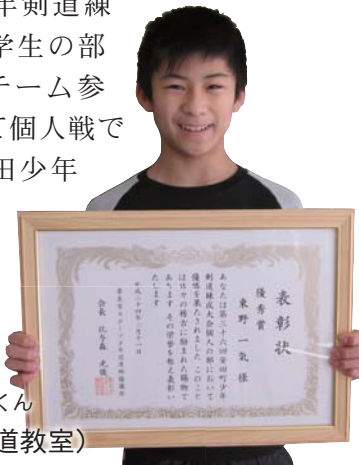 年剣道練
学生の部
チーム参
て個人戦で
田少年
表彰状
優秀賞
東野 一気 様
あなたは第三十六回安田町少年
剣道練成大会個人の部において
優勝を果たされました このこと
は日々の稽古に励まれた賜物で
あります その栄誉を称え表彰い
たします
平成二十四年二月十一日
会長 比与森
くん
道教室）